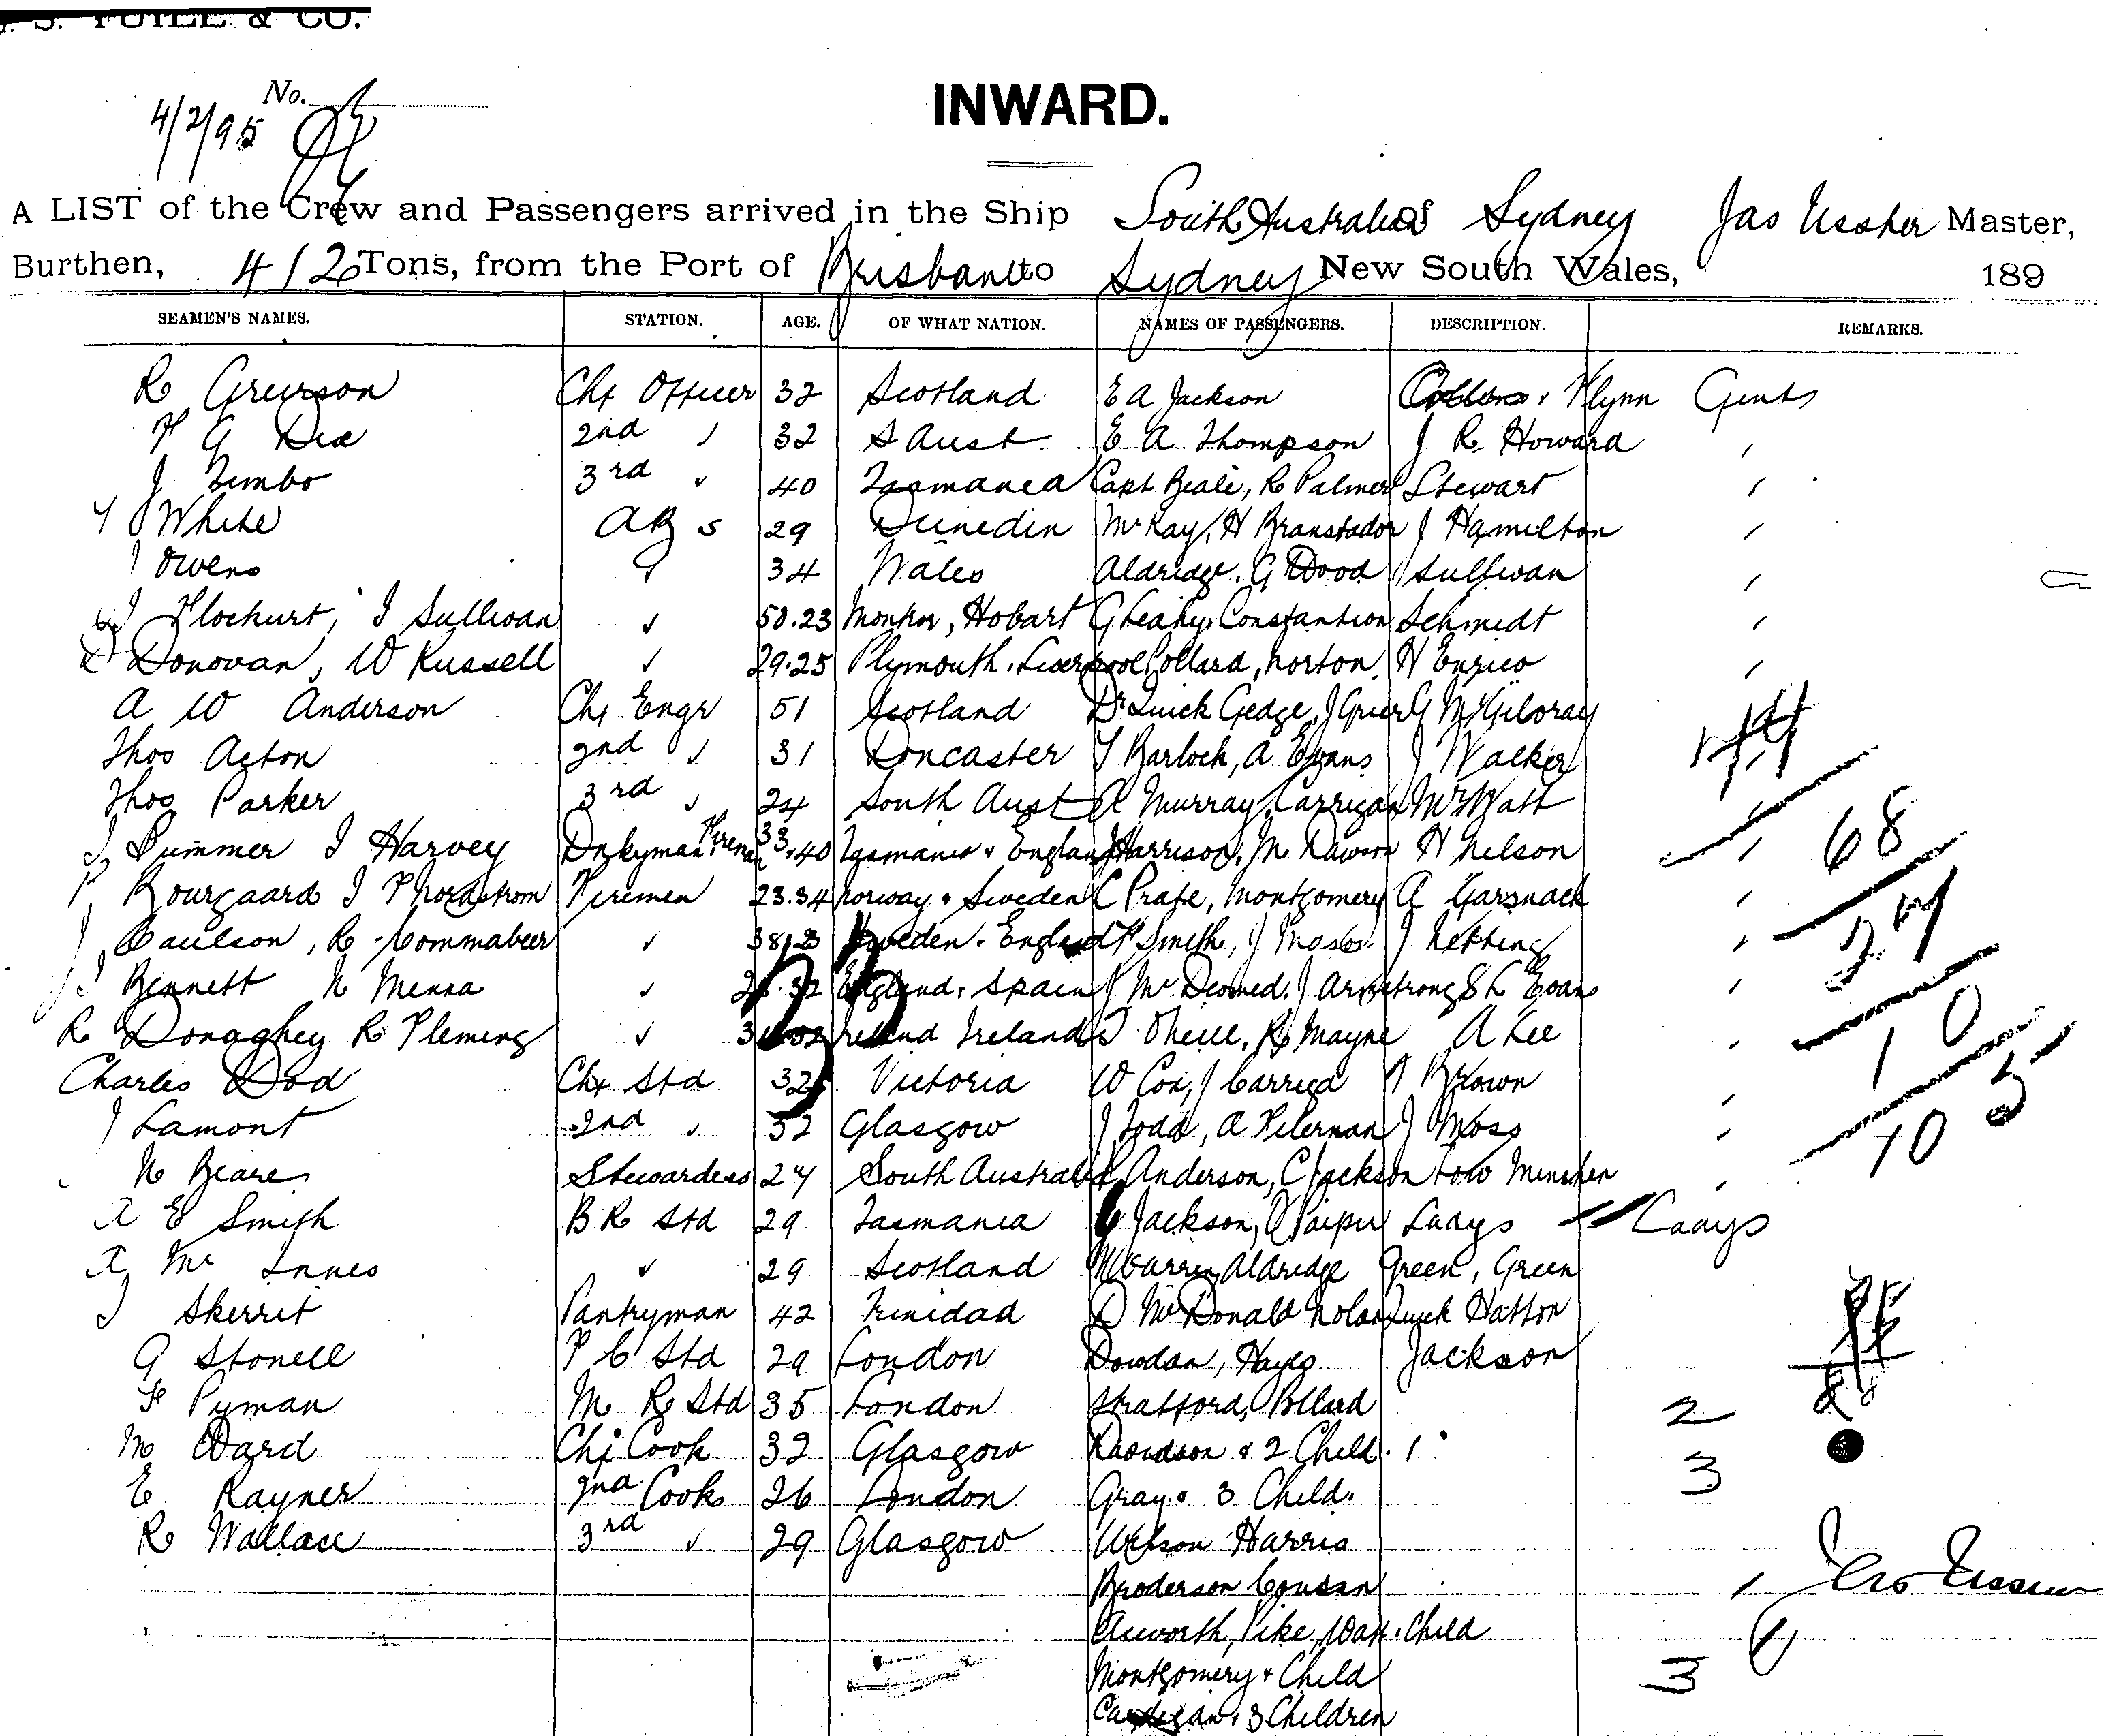 S. YUILL & CO.
No.
4/2/95
INWARD.
A LIST of the Crew and Passengers arrived in the Ship South Australian of Sydney Jas Ussher Master,
Burthen, 412 Tons, from the Port of Brisbane to Sydney New South Wales, 189
SEAMEN'S NAMES. STATION. AGE. OF WHAT NATION. NAMES OF PASSENGERS. DESCRIPTION. REMARKS.
R Greirson Chf Officer 32 Scotland E A Jackson Flynn Gents
F G Dix 2nd " 32 S Aust E A Thompson J R Howard "
J Jimbo 3rd " 40 Tasmania Capt Beale, R Palmer Stewart "
White AB s 29 Dunedin McKay, H Branstador J Hamilton "
J Owens " 34 Wales Aldridge, G Wood Sullivan "
Flockurt, J Sullivan " 50.23 Hobart G Leahy, Constantion Schmidt "
D Donovan, W Russell " 29.25 Plymouth. Liverpool Pollard, Norton, H Enrico "
A W Anderson Chf Engr 51 Scotland Dr Quick Gedge, J Grier G McGilvray
Thos Acton 2nd " 31 Doncaster T Barlock, A Evans J Walker
Thos Parker 3rd " 24 South Aust A Murray, Carrigan McWatt
Pummer J Harvey Dnkyman, Fireman 33.40 Tasmania & England J Harrison, M. Dawson H Nelson " 68
P Bourgaard J F Nordstrom Firemen 23.34 Norway & Sweden C Prate, Montgomery A Garsnack "
J Caulson, R Commabeer " Sweden. England F Smith, J Moses J Nething "
J Bennett N Menna " England, Spain J McDermed, J Armstrong S L Evans "
R Donaghey R Fleming " Ireland Ireland J Oneill, R Mayne A Lee " 10
Charles Dod Chf Std 32 Victoria W Cox, J Carriga Brown "
J Lamont 2nd " 32 Glasgow J Todd, A Peterman J Moss " 105
N Beare Stewardess 27 South Australia Anderson, C Jackson
A E Smith B R Std 29 Tasmania Jackson, Piper Ladys Ladys
A Mc Innes " 29 Scotland Warren Aldridge Green, Green
J Skerrit Pantryman 42 Trinidad D McDonald Nolan Quick Hatton
G Stonell F C Std 29 London Dowdan, Hayes Jackson
F Pyman M R Std 35 London Stratford, Pollard 2
M Ward Chf Cook 32 Glasgow Davidson & 2 Child. 1
E Rayner 2nd Cook 26 London Gray & 3 Child. 3
R Wallace 3rd " 29 Glasgow Wilson Harris
Broderson Cousan 1 Jas Ussher
Acworth, Pike, Watt & Child 1
Montgomery & Child 3
Cardigan & 3 Children